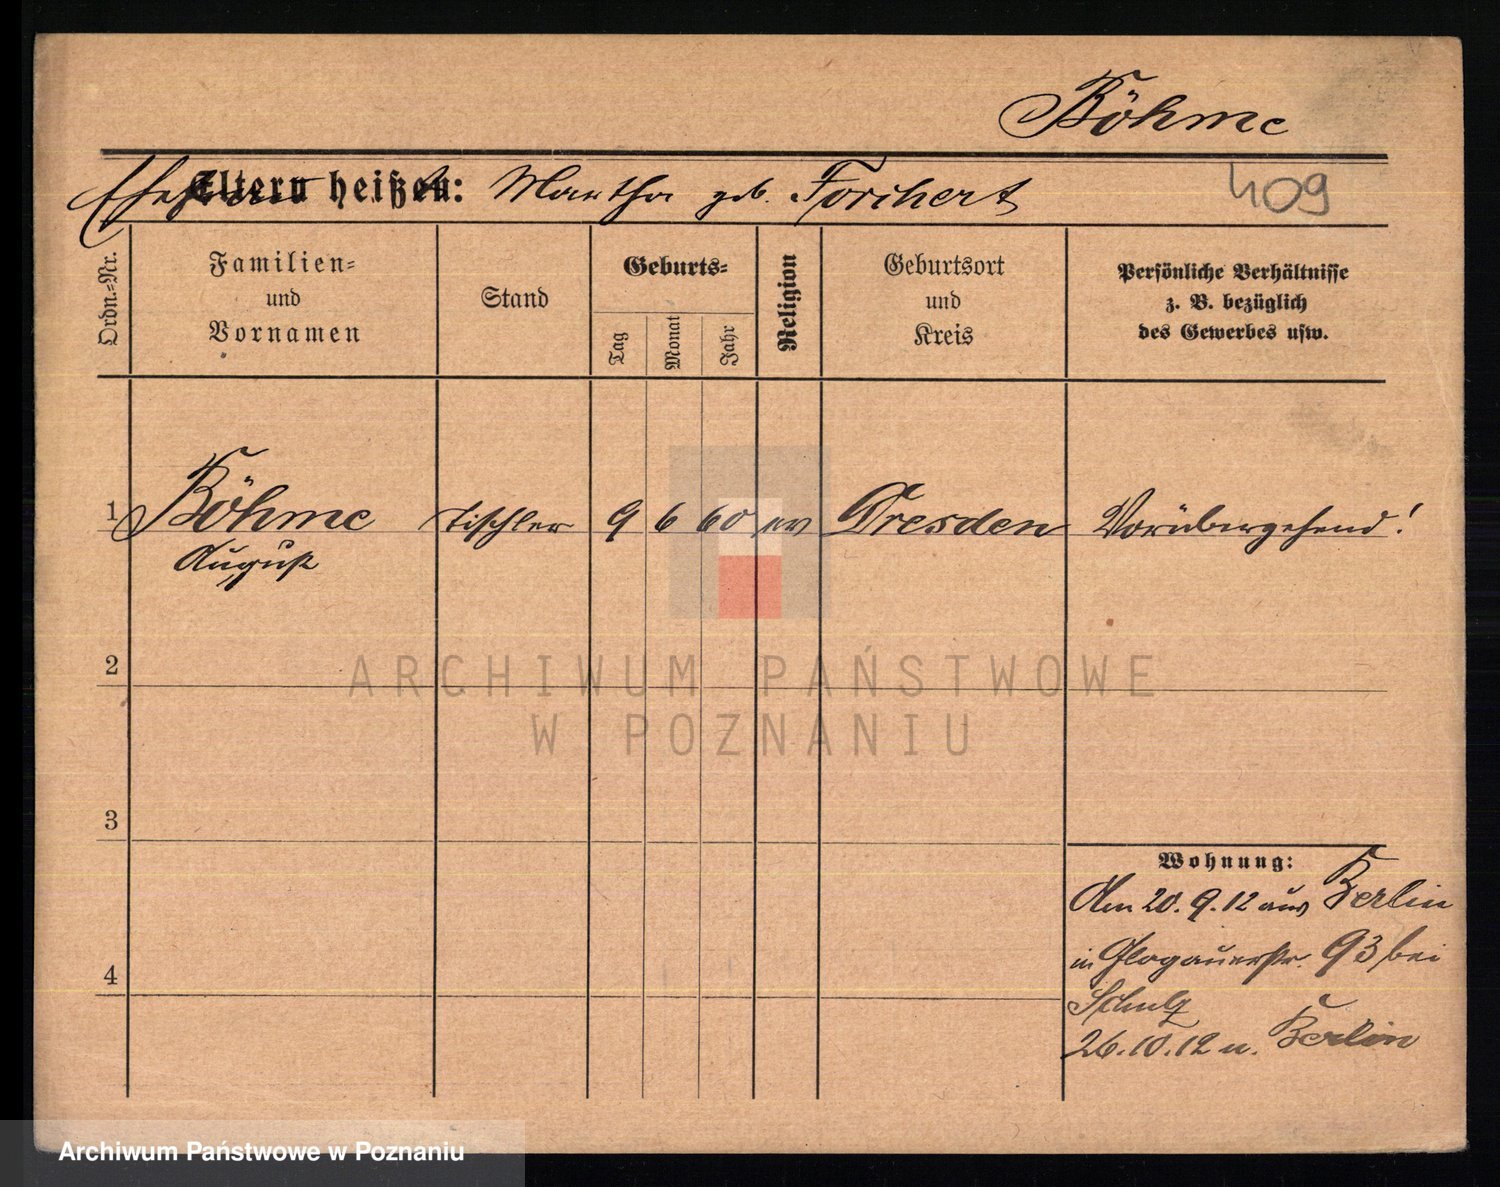 Böhme
Ehefrau
Eltern heißen: Martha geb. Forchert 409
Ordn.-Nr.
Familien-
und
Vornamen
Stand
Geburts-
Tag
Monat
Jahr
Religion
Geburtsort
und
Kreis
Persönliche Verhältnisse
z. B. bezüglich
des Gewerbes usw.
1 Böhme Tischler 9 6 60 ev Dresden Vorübergehend!
August
2
ARCHIWUM PAŃSTWOWE
W POZNANIU
3
Wohnung:
Am 20. 9. 12 aus Berlin
in Glogauerstr. 93 bei
Schulz
4
26. 10. 12 n. Berlin
Archiwum Państwowe w Poznaniu